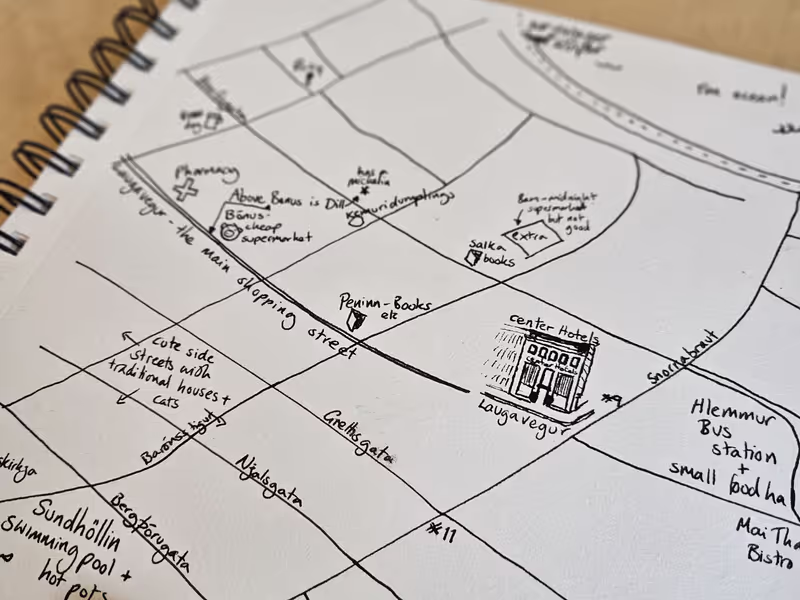 I'm ocean!
Pharmacy
Above Bónus is Dill
has
michelin
Bónus-
cheap
supermarket
supermarket
but not
good
extra
Salka
books
Laugavegur - the main shopping street
Peninn - Books
etc
center Hotels
center Hotels
Laugavegur
*9
Snorrabraut
Hlemmur
Bus
station
+
small food ha
Mai Tha
Bistro
cute side
streets with
traditional houses +
cats
Barónsstígut
Grettisgata
Njalsgata
*11
Bergþórugata
skirkja
Sundhöllin
swimming pool +
hot pots